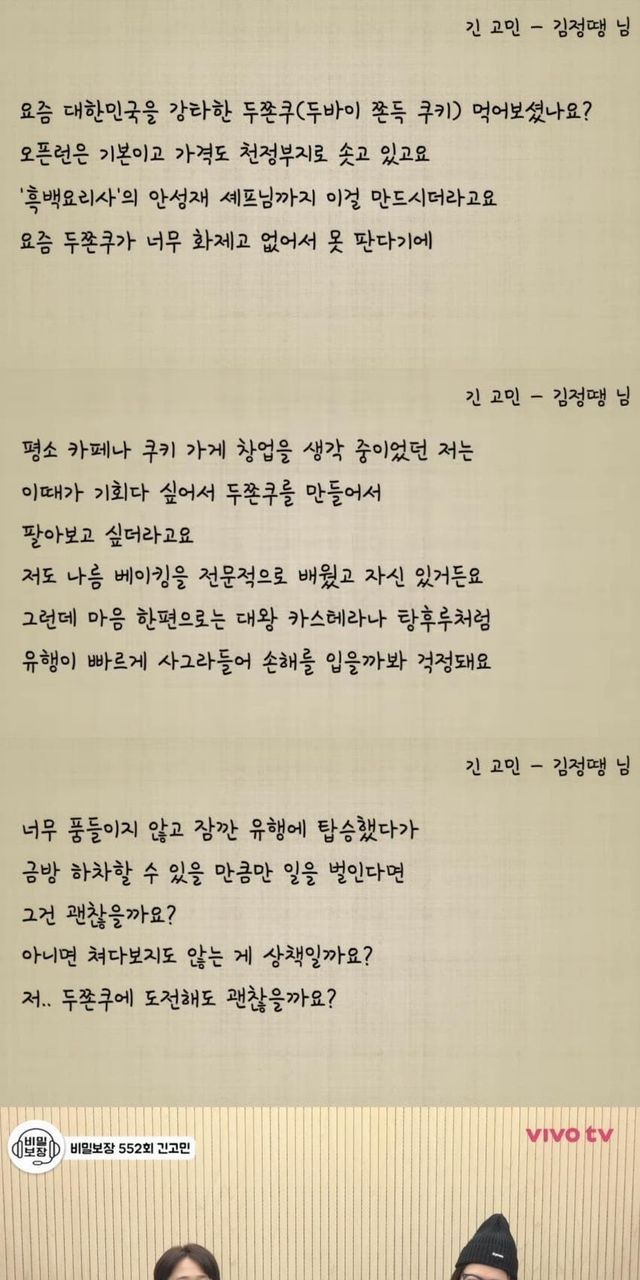 긴 고민 - 김정땡 님
요즘 대한민국을 강타한 두쫀쿠(두바이 쫀득 쿠키) 먹어보셨나요?
오픈런은 기본이고 가격도 천정부지로 솟고 있고요
'흑백요리사'의 안성재 셰프님까지 이걸 만드시더라고요
요즘 두쫀쿠가 너무 화제고 없어서 못 판다기에
긴 고민 - 김정땡 님
평소 카페나 쿠키 가게 창업을 생각 중이었던 저는
이때가 기회다 싶어서 두쫀쿠를 만들어서
팔아보고 싶더라고요
저도 나름 베이킹을 전문적으로 배웠고 자신 있거든요
그런데 마음 한편으로는 대왕 카스테라나 탕후루처럼
유행이 빠르게 사그라들어 손해를 입을까봐 걱정돼요
긴 고민 - 김정땡 님
너무 품들이지 않고 잠깐 유행에 탑승했다가
금방 하차할 수 있을 만큼만 일을 벌인다면
그건 괜찮을까요?
아니면 쳐다보지도 않는 게 상책일까요?
저.. 두쫀쿠에 도전해도 괜찮을까요?
비밀
보장
비밀보장 552회 긴고민
VIVO tv